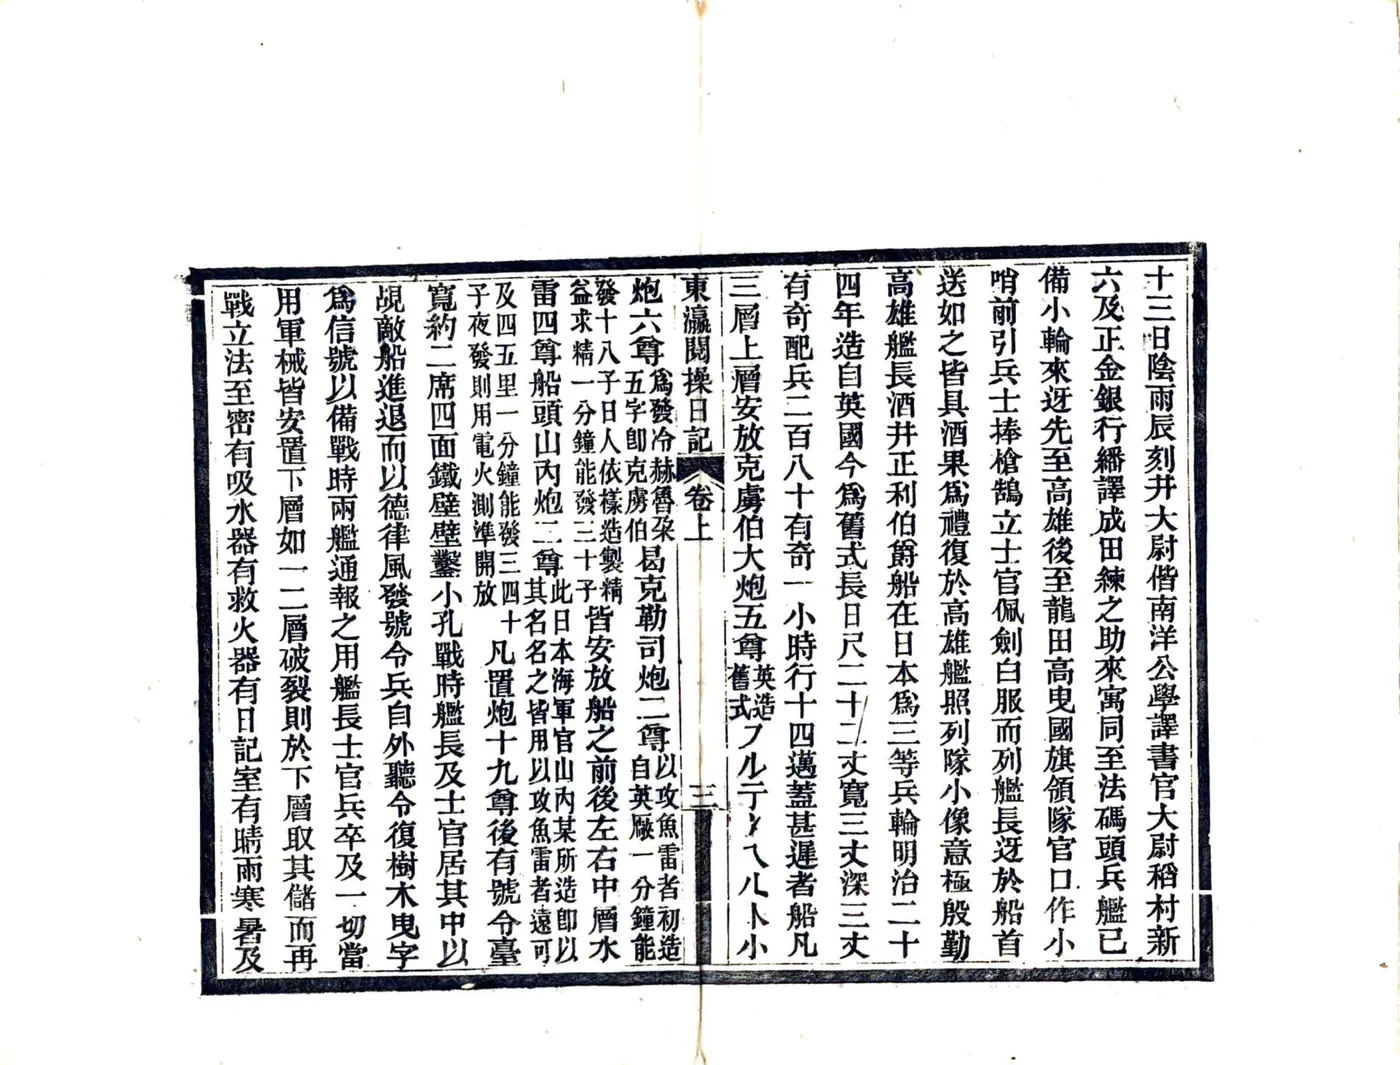 十三日陰雨辰刻井大尉偕南洋公學譯書官大尉稻村新
六及正金銀行繙譯成田練之助來寓同至法碼頭兵艦已
備小輪來迓先至高雄後至龍田高曳國旗領隊官口作小
哨前引兵士捧槍鵠立士官佩劍白服而列艦長迓於船首
送如之皆具酒果爲禮復於高雄艦照列隊小像意極殷勤
高雄艦長酒井正利伯爵船在日本爲三等兵輪明治二十
四年造自英國今爲舊式長日尺二十二丈寬三丈深三丈
有奇配兵二百八十有奇一小時行十四邁蓋甚遲者船凡
三層上層安放克虜伯大炮五尊英造舊式フル小
東瀛閱操日記 卷上 三
炮六尊爲發冷赫魯朶五字卽克虜伯曷克勒司炮二尊以攻魚雷者初造自英厰一分鐘能
發十八子日人依樣造製精益求精一分鐘能發三十子皆安放船之前後左右中層水
雷四尊船頭山內炮二尊此日本海軍官山內某所造卽以其名名之皆用以攻魚雷者遠可
及四五里一分鐘能發三四十子夜發則用電火測準開放凡置炮十九尊後有號令臺
寬約二席四面鐵壁壁鑿小孔戰時艦長及士官居其中以
覘敵船進退而以德律風發號令兵自外聽令復樹木曳字
爲信號以備戰時兩艦通報之用艦長士官兵卒及一切當
用軍械皆安置下層如一二層破裂則於下層取其儲而再
戰立法至密有吸水器有救火器有日記室有晴雨寒暑及